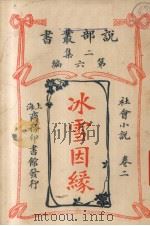 說部叢書
二集
第六編
社會小說 卷二
冰雪因緣
上海商務印書館發行